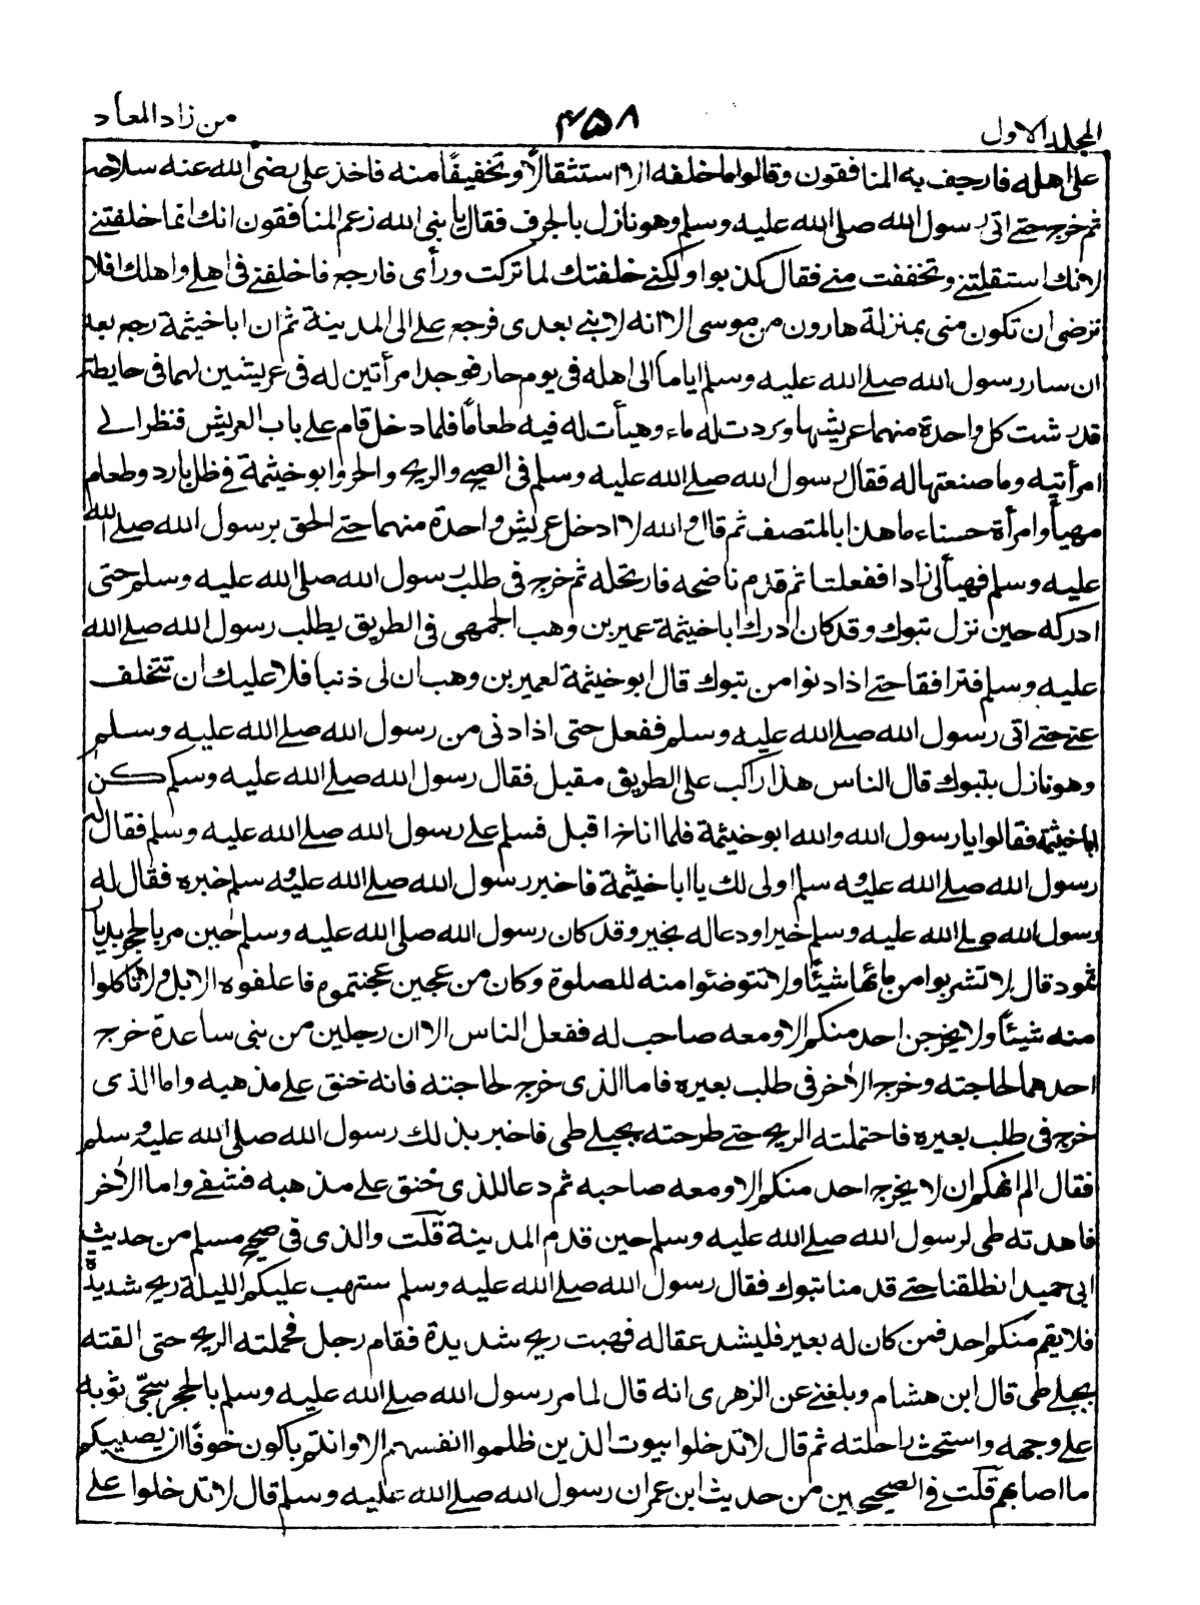 المجلد الاول
۴۵۸
من زاد المعاد
على اهله فارجف به المنافقون وقالوا ما خلفه الا استثقالًا وتخفيفًا منه فاخذ على رضى الله عنه سلاحه
ثم خرج حتى اتى رسول الله صلى الله عليه وسلم وهو نازل بالجرف فقال يا نبى الله زعم المنافقون انك انما خلفتنى
لانك استقلتنى وتخففت منى فقال كذبوا ولكنى خلفتك لما تركت ورأى فارجع فاخلفنى فى اهلى واهلك افلا
ترضى ان تكون منى بمنزلة هارون من موسى الا انه لا نبى بعدى فرجع على الى المدينة ثم ان ابا خيثمة رجع بعد
ان سار رسول الله صلى الله عليه وسلم اياما الى اهله فى يوم حار فوجد امرأتين له فى عريشين لهما فى حايطه
قد رشت كل واحدة منهما عريشها وبردت له ماء وهيأت له فيه طعامًا فلما دخل قام على باب العريش فنظر الى
امرأتيه وما صنعتا له فقال رسول الله صلى الله عليه وسلم فى الضح والريح والحر وابو خيثمة فى ظل بارد وطعام
مهيأ وامرأة حسناء ما هذا بالمتصف ثم قال والله لا ادخل عريش واحدة منهما حتى الحق برسول الله صلى الله
عليه وسلم فهيأ لى زادا ففعلتا ثم قدم ناضحه فارتحله ثم خرج فى طلب رسول الله صلى الله عليه وسلم حتى
ادركه حين نزل تبوك وقد كان ادرك ابا خيثمة عمير بن وهب الجمحى فى الطريق يطلب رسول الله صلى الله
عليه وسلم فترافقا حتى اذا دنوا من تبوك قال ابو خيثمة لعمير بن وهب ان لى ذنبا فلا عليك ان تتخلف
عنى حتى اتى رسول الله صلى الله عليه وسلم ففعل حتى اذا دنى من رسول الله صلى الله عليه وسلم
وهو نازل بتبوك قال الناس هذا راكب على الطريق مقبل فقال رسول الله صلى الله عليه وسلم كن
ابا خيثمة فقالوا يا رسول الله والله ابو خيثمة فلما اناخ اقبل فسلم على رسول الله صلى الله عليه وسلم فقال له
رسول الله صلى الله عليه وسلم اولى لك يا ابا خيثمة فاخبر رسول الله صلى الله عليه وسلم خبره فقال له
رسول الله صلى الله عليه وسلم خيرا ودعا له بخير وقد كان رسول الله صلى الله عليه وسلم حين مر بالحجر بديار
ثمود قال لا تشربوا من مائها شيئًا ولا تتوضئوا منه للصلوة وكان من عجين عجنتموه فاعلفوه الابل ولا تاكلوا
منه شيئًا ولا يخرجن احد منكم الا ومعه صاحب له ففعل الناس الا ان رجلين من بنى ساعدة خرج
احدهما لحاجته وخرج الأخر فى طلب بعيره فاما الذى خرج لحاجته فانه خنق على مذهبه واما الذى
خرج فى طلب بعيره فاحتملته الريح حتى طرحته بجبلى طى فاخبر بذلك رسول الله صلى الله عليه وسلم
فقال الم انهكم ان لا يخرج احد منكم الا ومعه صاحبه ثم دعا للذى خنق على مذهبه فشفى واما الأخر
فاهدته طى لرسول الله صلى الله عليه وسلم حين قدم المدينة قلت والذى فى صحيح مسلم من حديث
ابى حميد انطلقنا حتى قدمنا تبوك فقال رسول الله صلى الله عليه وسلم ستهب عليكم الليلة ريح شديدة
فلا يقم منكم احد فمن كان له بعير فليشد عقاله فهبت ريح شديدة فقام رجل فحملته الريح حتى القته
بجبلى طى قال ابن هشام وبلغنى عن الزهرى انه قال لما مر رسول الله صلى الله عليه وسلم بالحجر سجّى ثوبه
على وجهه واستحث راحلته ثم قال لا تدخلوا بيوت الذين ظلموا انفسهم الا وانتم باكون خوفًا ان يصيبكم
ما اصابهم قلت فى الصحيحين من حديث ابن عمر ان رسول الله صلى الله عليه وسلم قال لا تدخلوا على